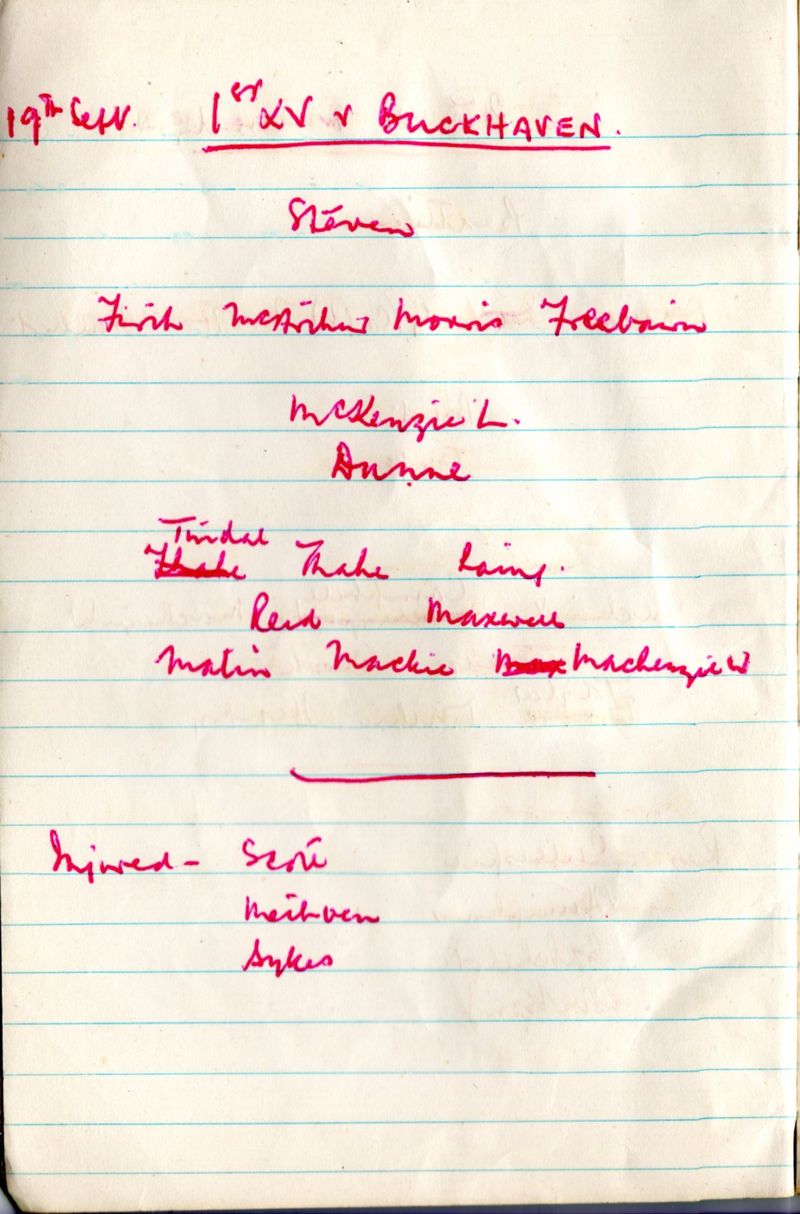 19th Sept. 1st XV v BUCKHAVEN.
Steven
Firth McArthur Morris Freebairn
McKenzie L.
Dunne
Tindal
Thake Thake Laing.
Reid Maxwell
Matin Mackie Mackenzie W
Injured - Scott
Methven
Sykes